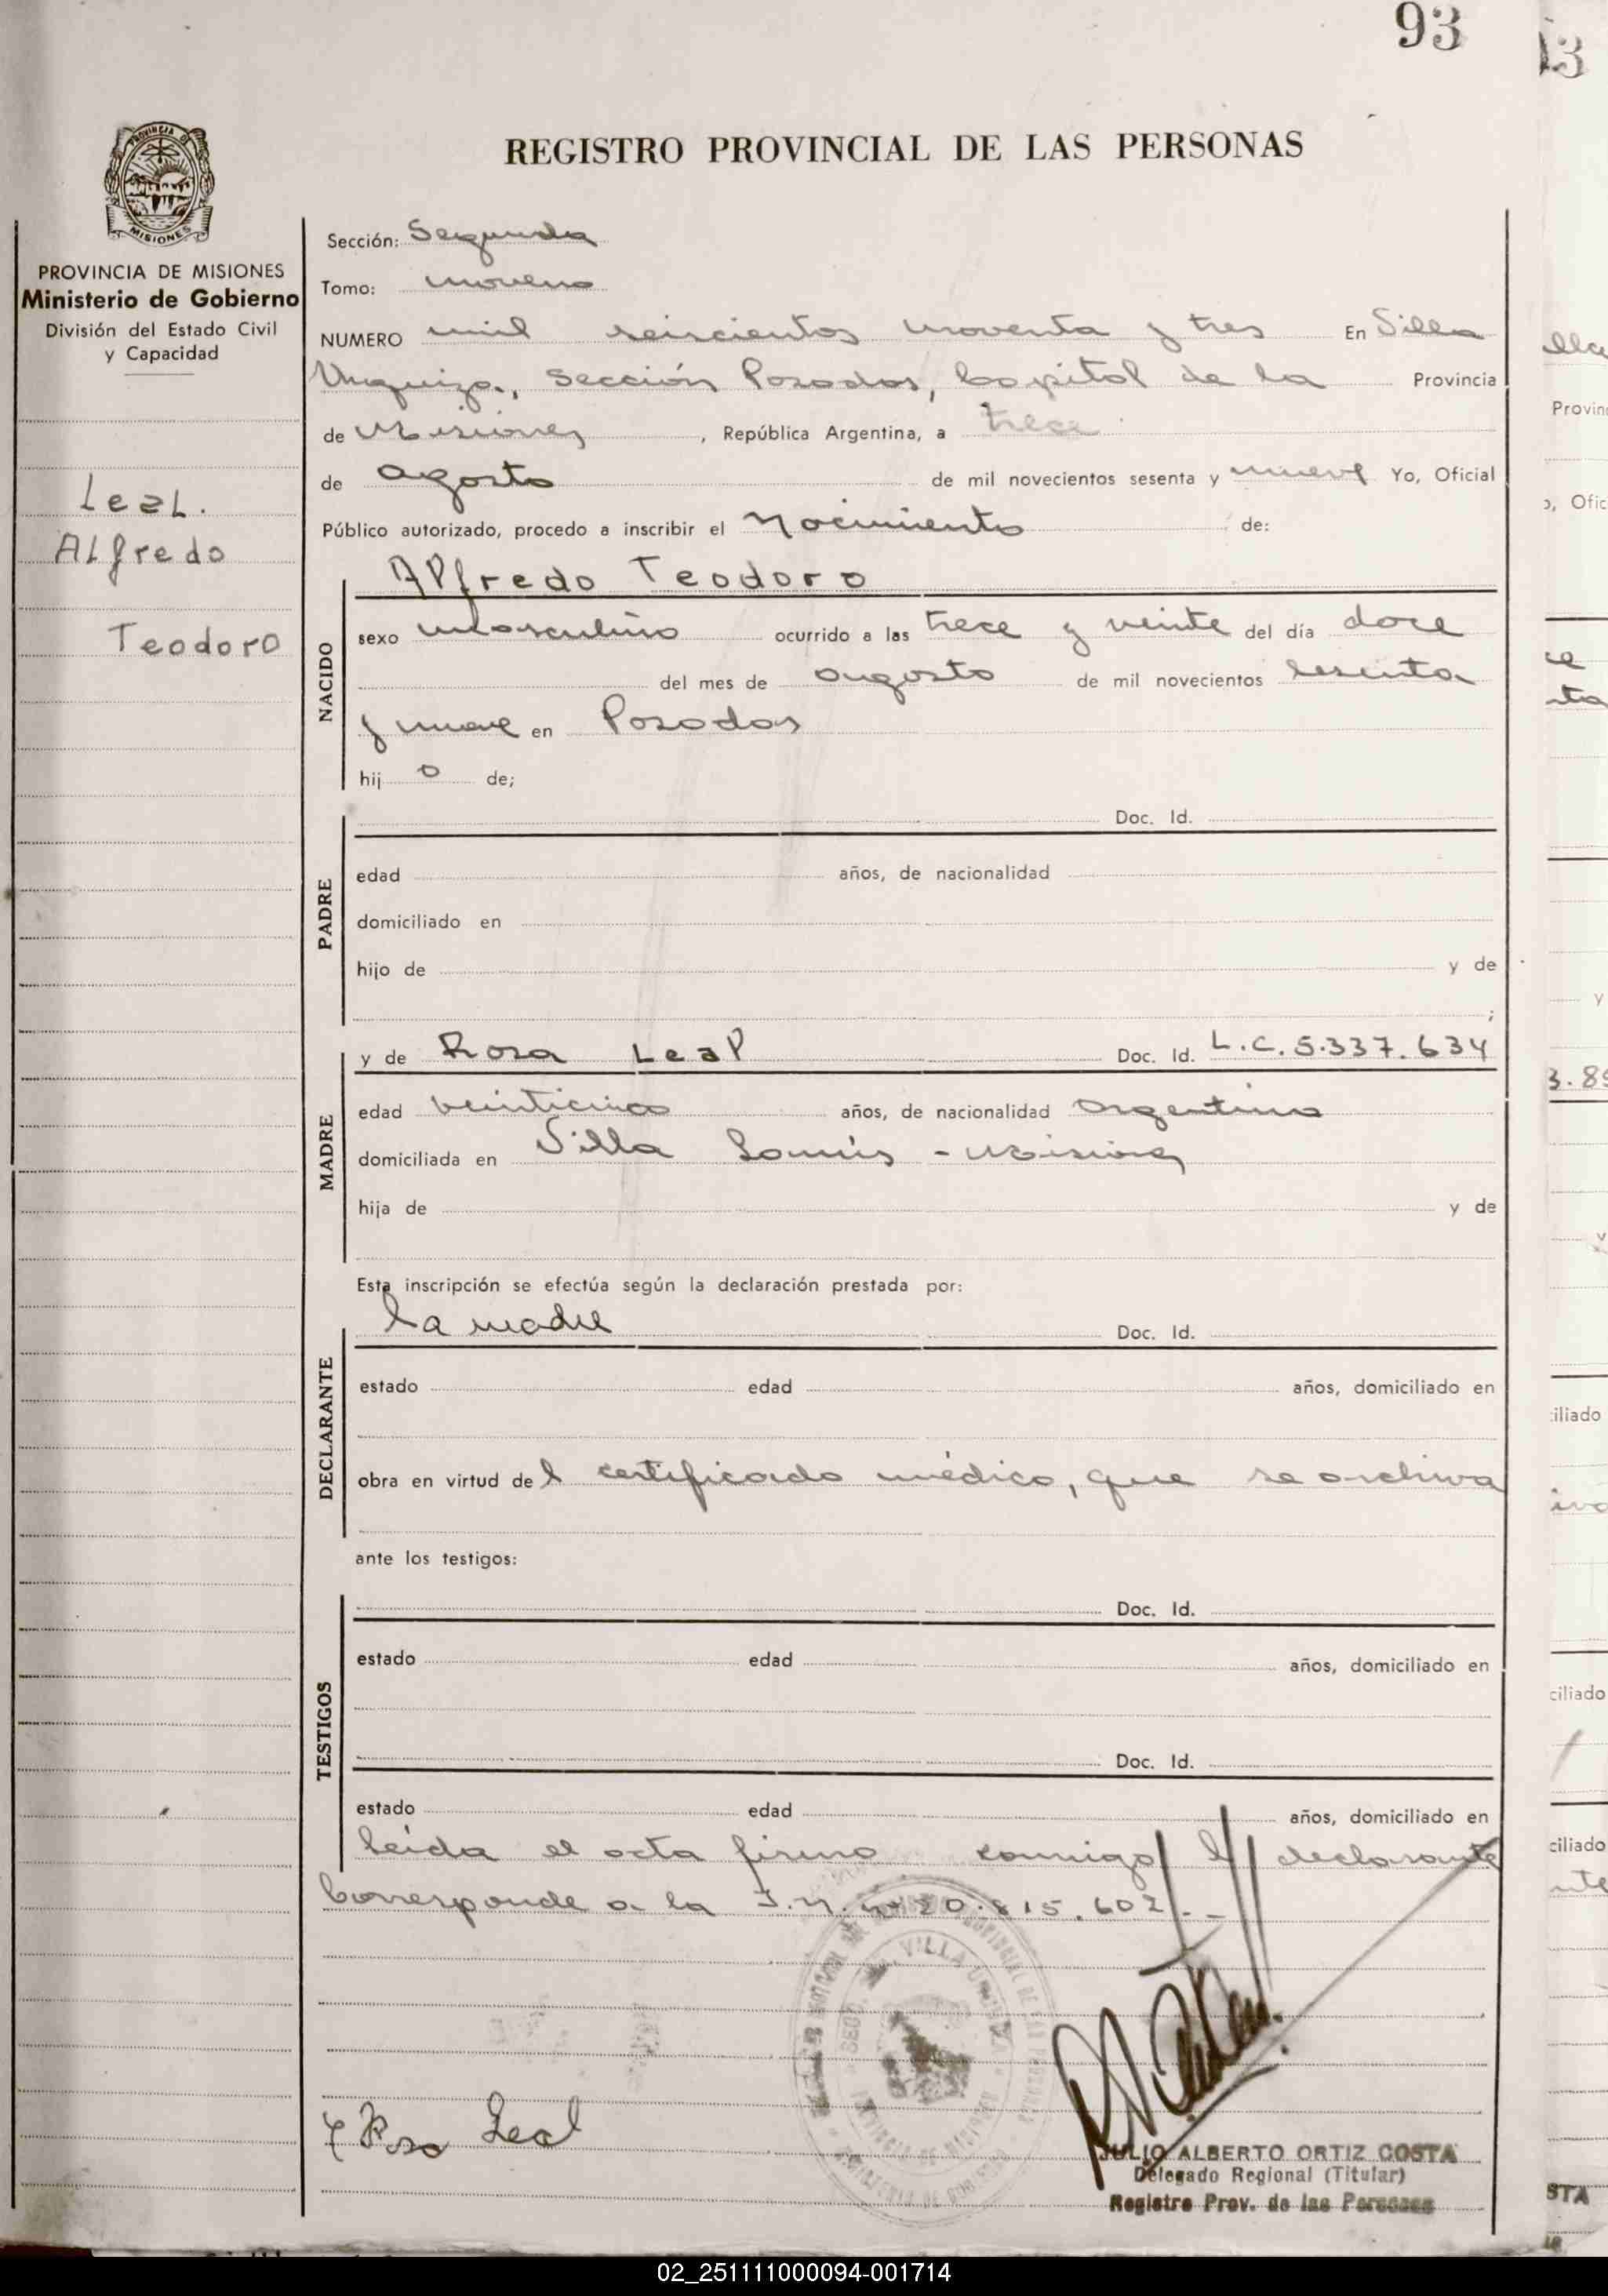 93
REGISTRO PROVINCIAL DE LAS PERSONAS
PROVINCIA DE MISIONES
Ministerio de Gobierno
División del Estado Civil
y Capacidad
Leal.
Alfredo
Teodoro
Sección: Segunda
Tomo: noveno
NUMERO mil seiscientos noventa y tres En Villa
Urquiza, Sección Posadas, Capital de la Provincia
de Misiones, República Argentina, a trece
de agosto de mil novecientos sesenta y nueve Yo, Oficial
Público autorizado, procedo a inscribir el Nacimiento de:
NACIDO
Alfredo Teodoro
sexo masculino ocurrido a las trece y veinte del día doce
del mes de agosto de mil novecientos sesenta
y nueve en Posadas
hij o de;
PADRE
Doc. Id.
edad años, de nacionalidad
domiciliado en
hijo de y de
;
MADRE
y de Rosa Leal Doc. Id. L.C. 5.337.634
edad veinticinco años, de nacionalidad argentina
domiciliada en Villa Lanús - Misiones
hija de y de
Esta inscripción se efectúa según la declaración prestada por:
DECLARANTE
la madre Doc. Id.
estado edad años, domiciliado en
obra en virtud del certificado médico, que se archiva
ante los testigos:
TESTIGOS
Doc. Id.
estado edad años, domiciliado en
Doc. Id.
estado edad años, domiciliado en
Leída el acta firma conmigo l declarante
Corresponde a la I.N. nº 20.815.602.-
Rosa Leal
JULIO ALBERTO ORTIZ COSTA
Delegado Regional (Titular)
Registro Prov. de las Personas
02_251111000094-001714